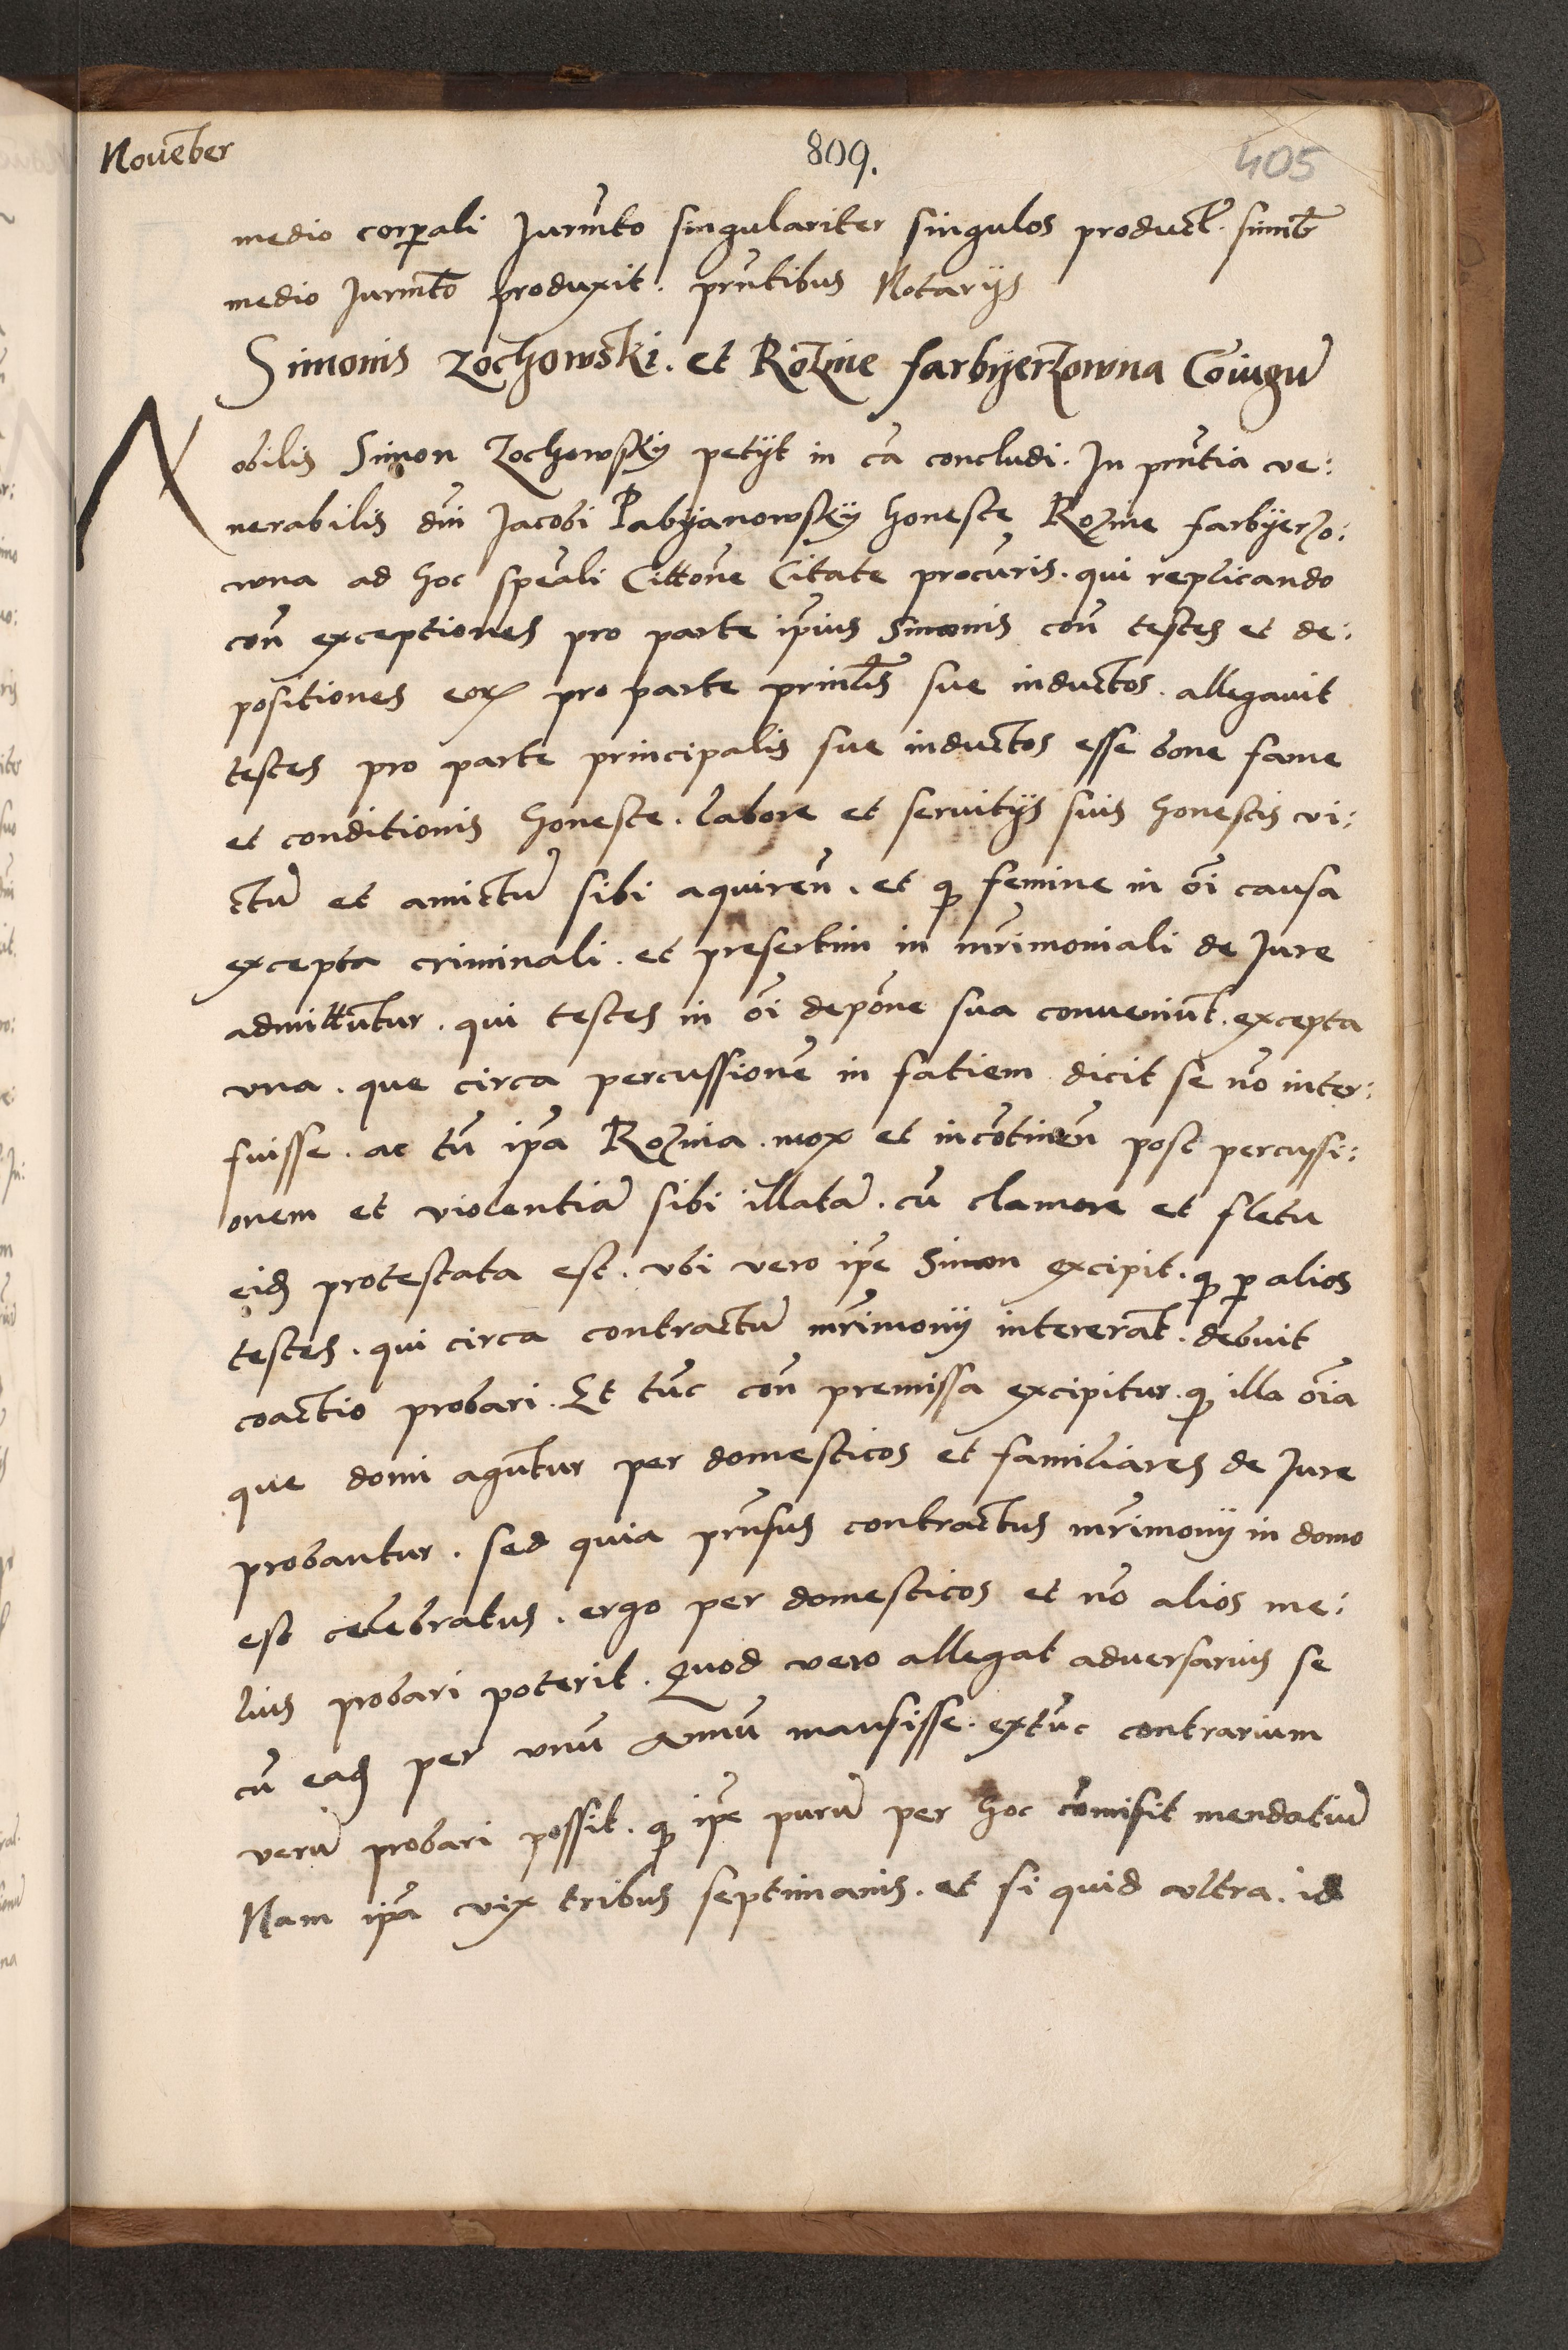 Nouēber
809.
405
medio corꝑali Jurm̄to singulariter singulos product. simit̄r
medio Jurm̄to produxit. pn̄tibus Notarijs
Simonis Zochowski. et Rozine farbyerzowna Cōiugū
Nobilis Simon Zochowsky petijt in cā concludi. In pn̄tia ve:
nerabilis dn̄i Jacobi Pabyanowsky honeste Rozine farbyerzo:
wna ad hoc spēali Cittōne Citate procūris. qui replicando
con̄ exceptiones pro parte ip̄ius Simonis con̄ testes et de:
positiones eoꝝ pro parte prin̄lis sue inductos. allegauit
testes pro parte principalis sue inductos esse bone fame
et conditionis honeste. labore et seruitijs suis honestis vi:
ctū et amictū sibi aquiren̄. et ꝙ femine in ōi causa
excepta criminali. et presertim in mr̄imoniali de Jure
admittūtur. qui testes in ōi depōne sua conueniūt. excepta
vna. que circa percussionē in fatiem dicit se nō inter:
fuisse. ac tn̄ ip̄a Rozina. mox et incōtinen̄ post percussi:
onem et violentiā sibi illatā. cū clamore et fletu
eid̄ protestata est. vbi vero ip̄e Simon excipit. ꝙ ꝑ alios
testes. qui circa contractū mr̄imonij intererāt. debuit
coactio probari. Et tūc con̄ premissa excipitur. ꝙ illa oīa
que domi agūtur per domesticos et familiares de Jure
probantur. sed quia pn̄sus contractus mr̄imonij in domo
est celebratus. ergo per domesticos et nō alios me:
lius probari poterit. Quod vero allegat adversarius se
cū ead̄ per vnū annū mansisse. extūc contrarium
verū probari possit. ꝙ ip̄e purū per hoc cōmisit mendatiū
Nam ip̄a vix tribus septimanis. et si quid vltra. id